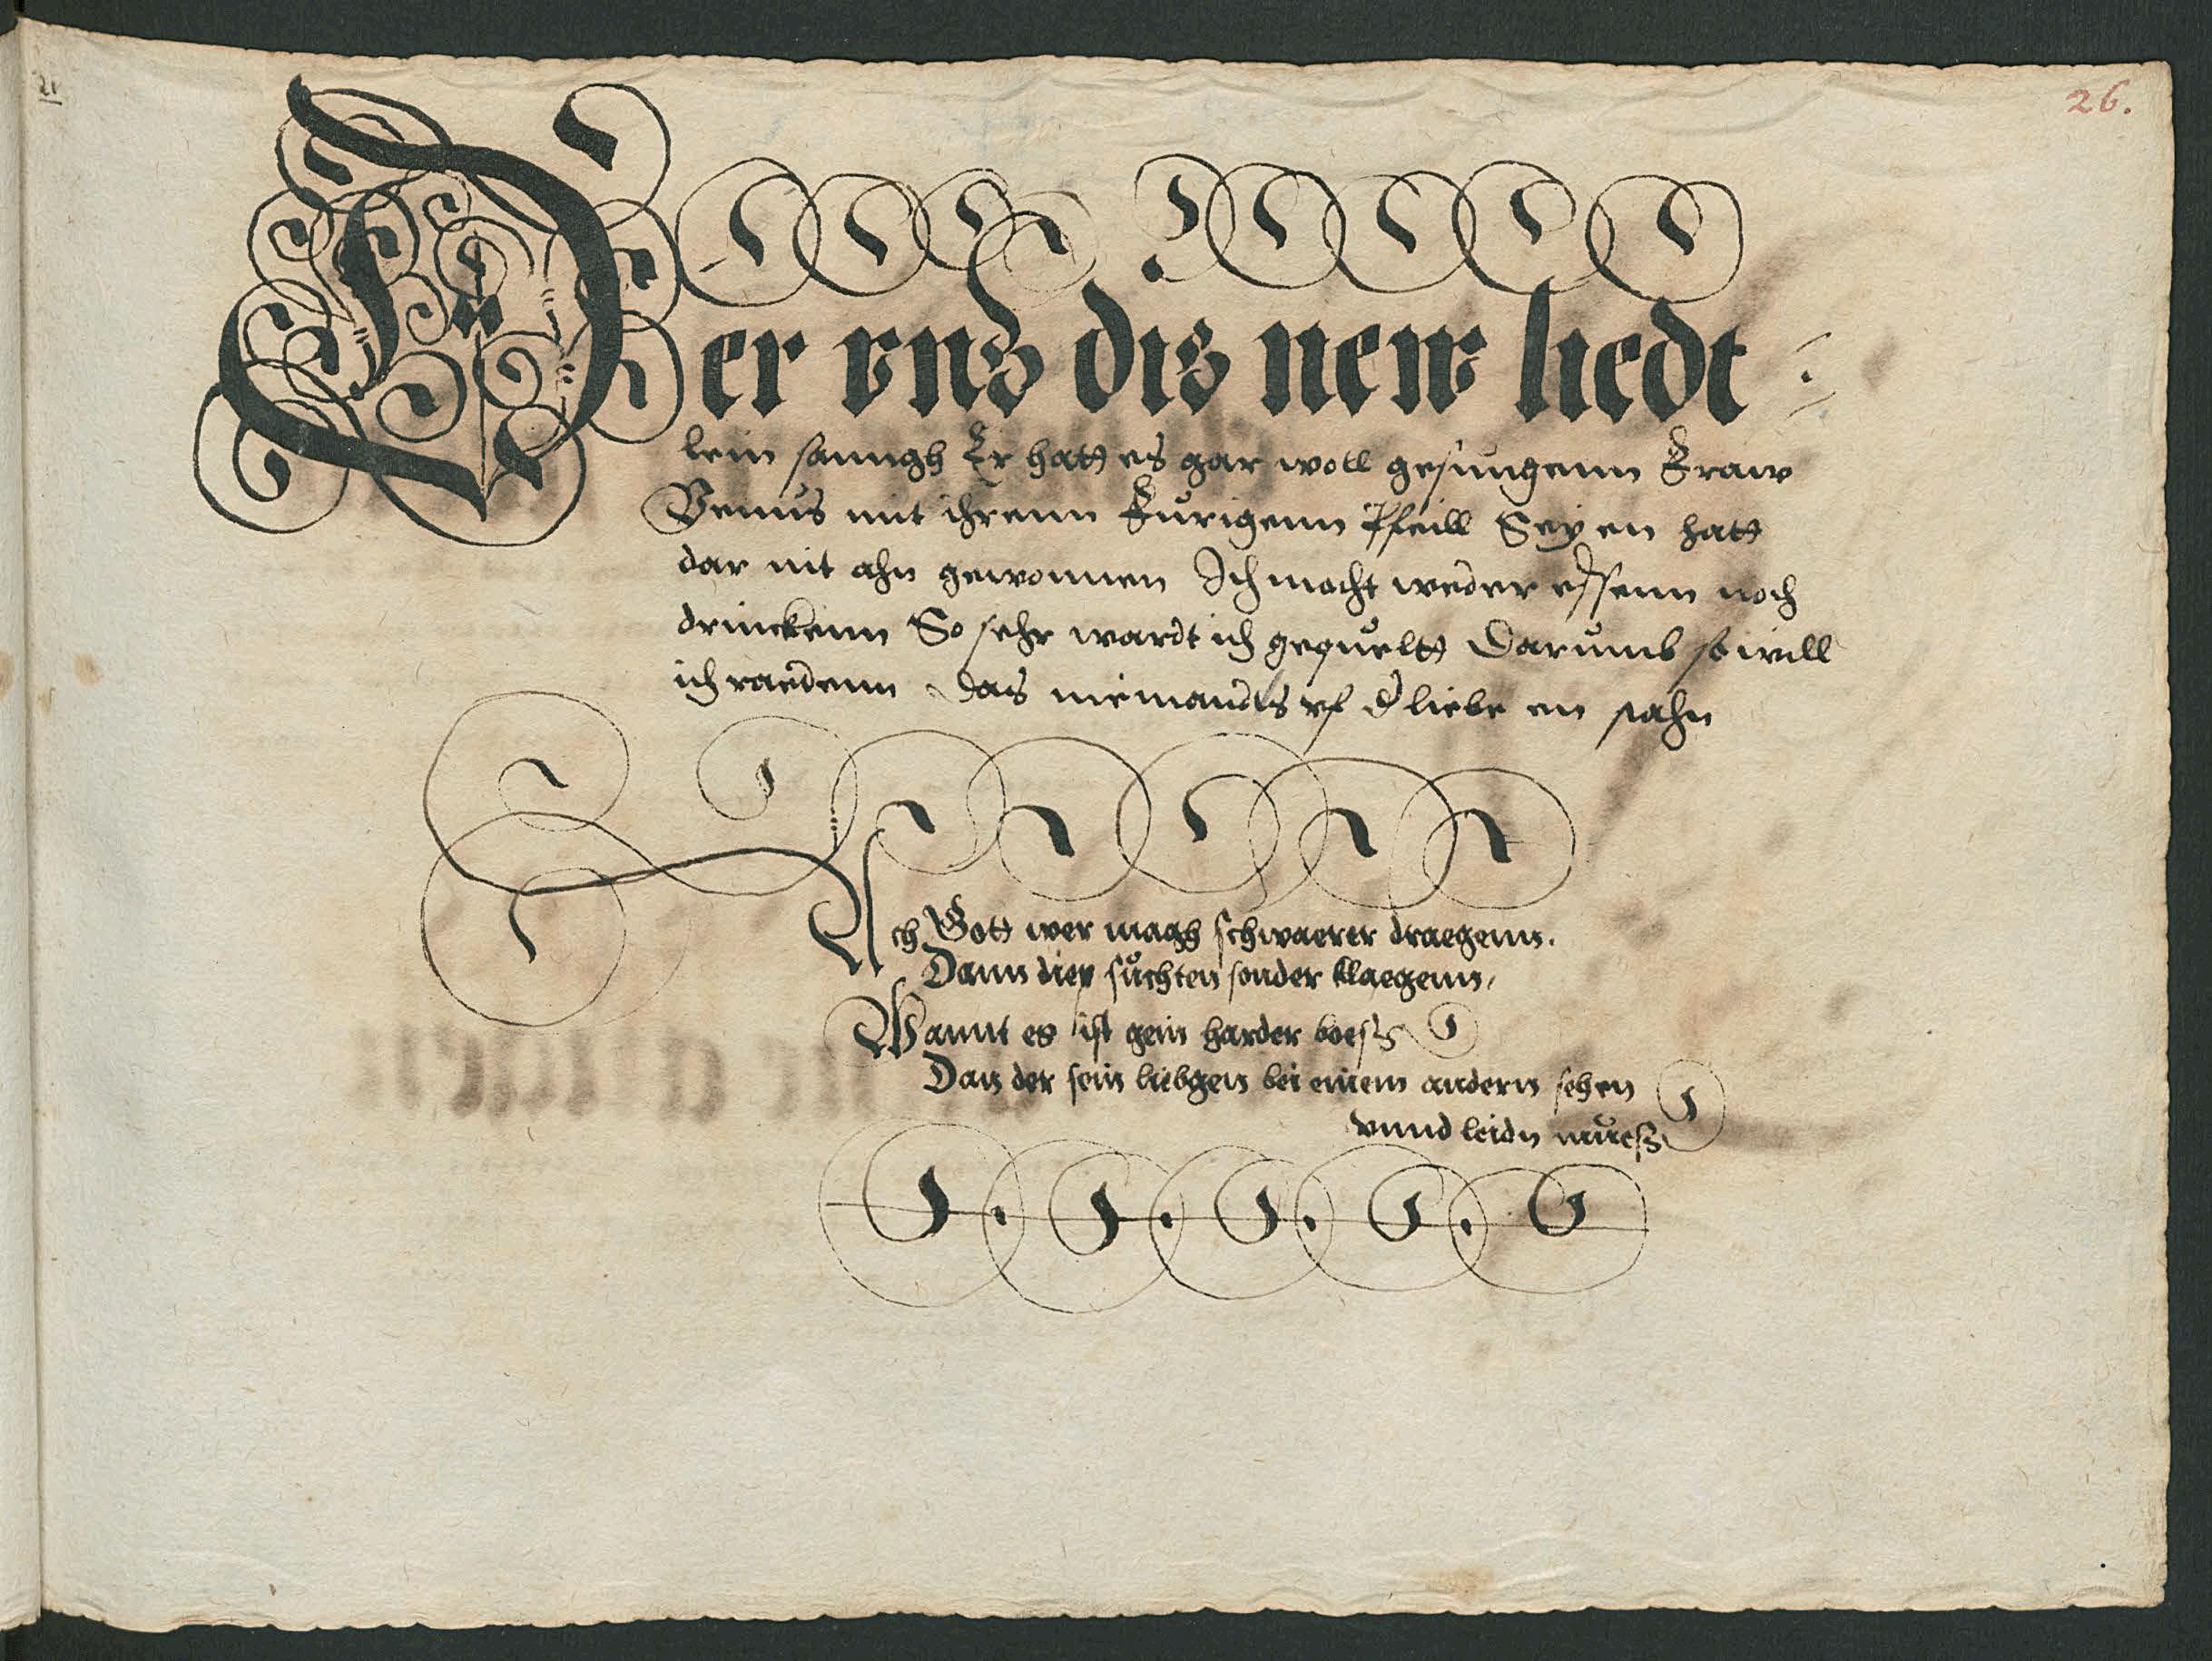 26.
Der vns dis new liedt
lein sanngh Er hatt es gar woll gesungenn Fraw
Venus mit ihrenn Furigenn Pfeill Sey en hatt
dar nit ahn gewonnen Ich mocht weder essenn noch
drinckenn So sehr wardt ich gequelt Darumb so will
ich raedenn Das niemandts vf d liebe en
Ach Gott wer magh schwaerer draegenn.
Dann diep suchten sonder klaegenn,
Wannt es ist gein harder boesz
Dan der sein liebgen bei einem andern sehen
vnnd leidn muesz